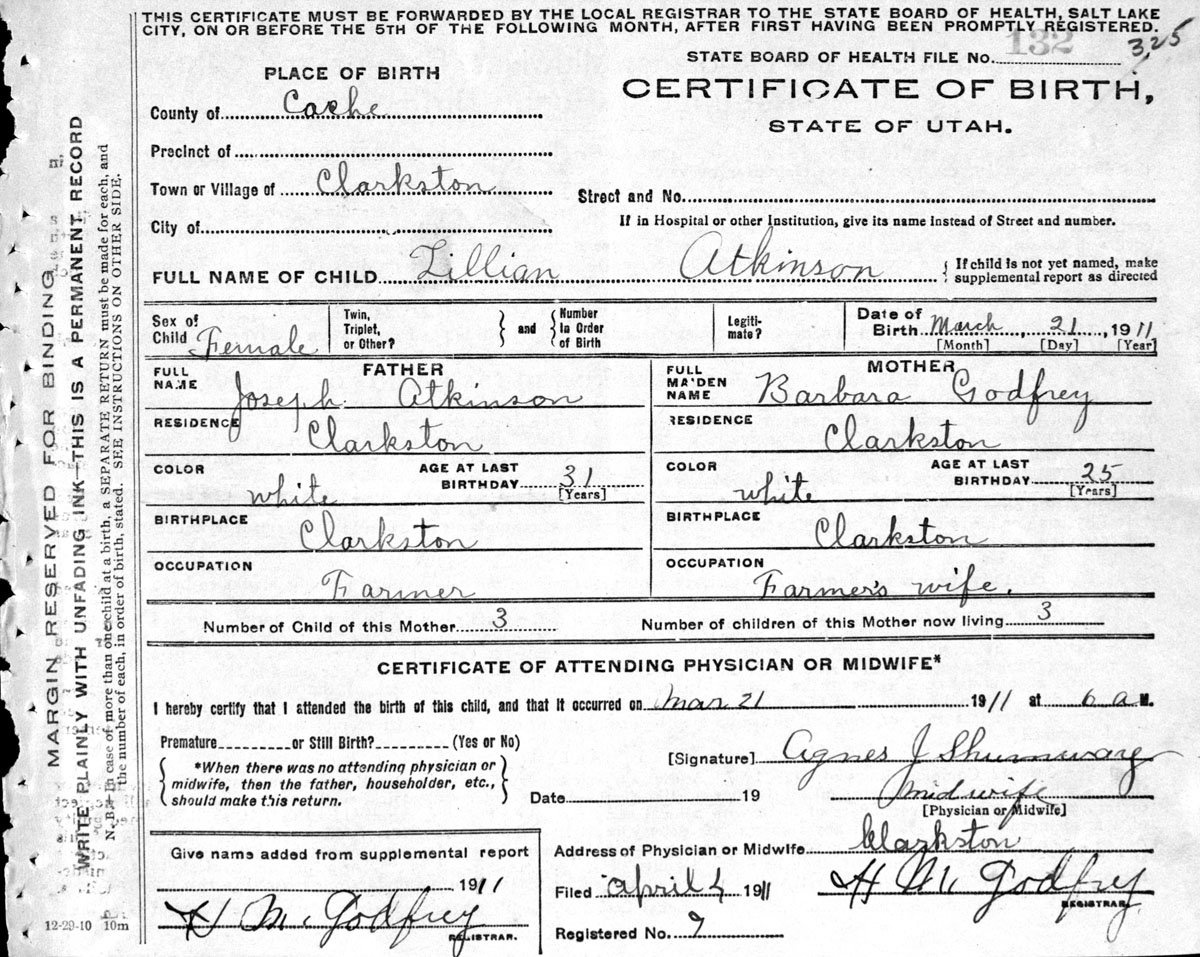 THIS CERTIFICATE MUST BE FORWARDED BY THE LOCAL REGISTRAR TO THE STATE BOARD OF HEALTH, SALT LAKE
CITY, ON OR BEFORE THE 5TH OF THE FOLLOWING MONTH, AFTER FIRST HAVING BEEN PROMPTLY REGISTERED.
132 325
STATE BOARD OF HEALTH FILE No.
PLACE OF BIRTH
CERTIFICATE OF BIRTH,
STATE OF UTAH.
County of Cache
Precinct of
Town or Village of Clarkston
Street and No.
City of
If in Hospital or other Institution, give its name instead of Street and number.
FULL NAME OF CHILD Lillian Atkinson { If child is not yet named, make
supplemental report as directed
Sex of Child Female
Twin, Triplet, or Other? } and { Number in Order of Birth
Legiti-mate?
Date of Birth March, 21, 1911
[Month] [Day] [Year]
FATHER
FULL NAME Joseph Atkinson
RESIDENCE Clarkston
COLOR white AGE AT LAST BIRTHDAY 31
[Years]
BIRTHPLACE Clarkston
OCCUPATION Farmer
MOTHER
FULL MAIDEN NAME Barbara Godfrey
RESIDENCE Clarkston
COLOR white AGE AT LAST BIRTHDAY 25
[Years]
BIRTHPLACE Clarkston
OCCUPATION Farmer's wife.
Number of Child of this Mother 3 Number of children of this Mother now living 3
CERTIFICATE OF ATTENDING PHYSICIAN OR MIDWIFE*
I hereby certify that I attended the birth of this child, and that it occurred on Mar 21 1911 at 6 a M.
Premature or Still Birth? (Yes or No)
{ *When there was no attending physician or
midwife, then the father, householder, etc.,
should make this return. }
[Signature] Agnes J Shumway
Date 19 midwife
[Physician or Midwife]
Address of Physician or Midwife Clarkston
Give name added from supplemental report
1911
H M. Godfrey
REGISTRAR.
Filed April 4 1911 H M. Godfrey
REGISTRAR.
Registered No. 9
12-29-10 10m
MARGIN RESERVED FOR BINDING
WRITE PLAINLY WITH UNFADING INK—THIS IS A PERMANENT RECORD
N. B.—In case of more than one child at a birth, a SEPARATE RETURN must be made for each, and
the number of each, in order of birth, stated. SEE INSTRUCTIONS ON OTHER SIDE.